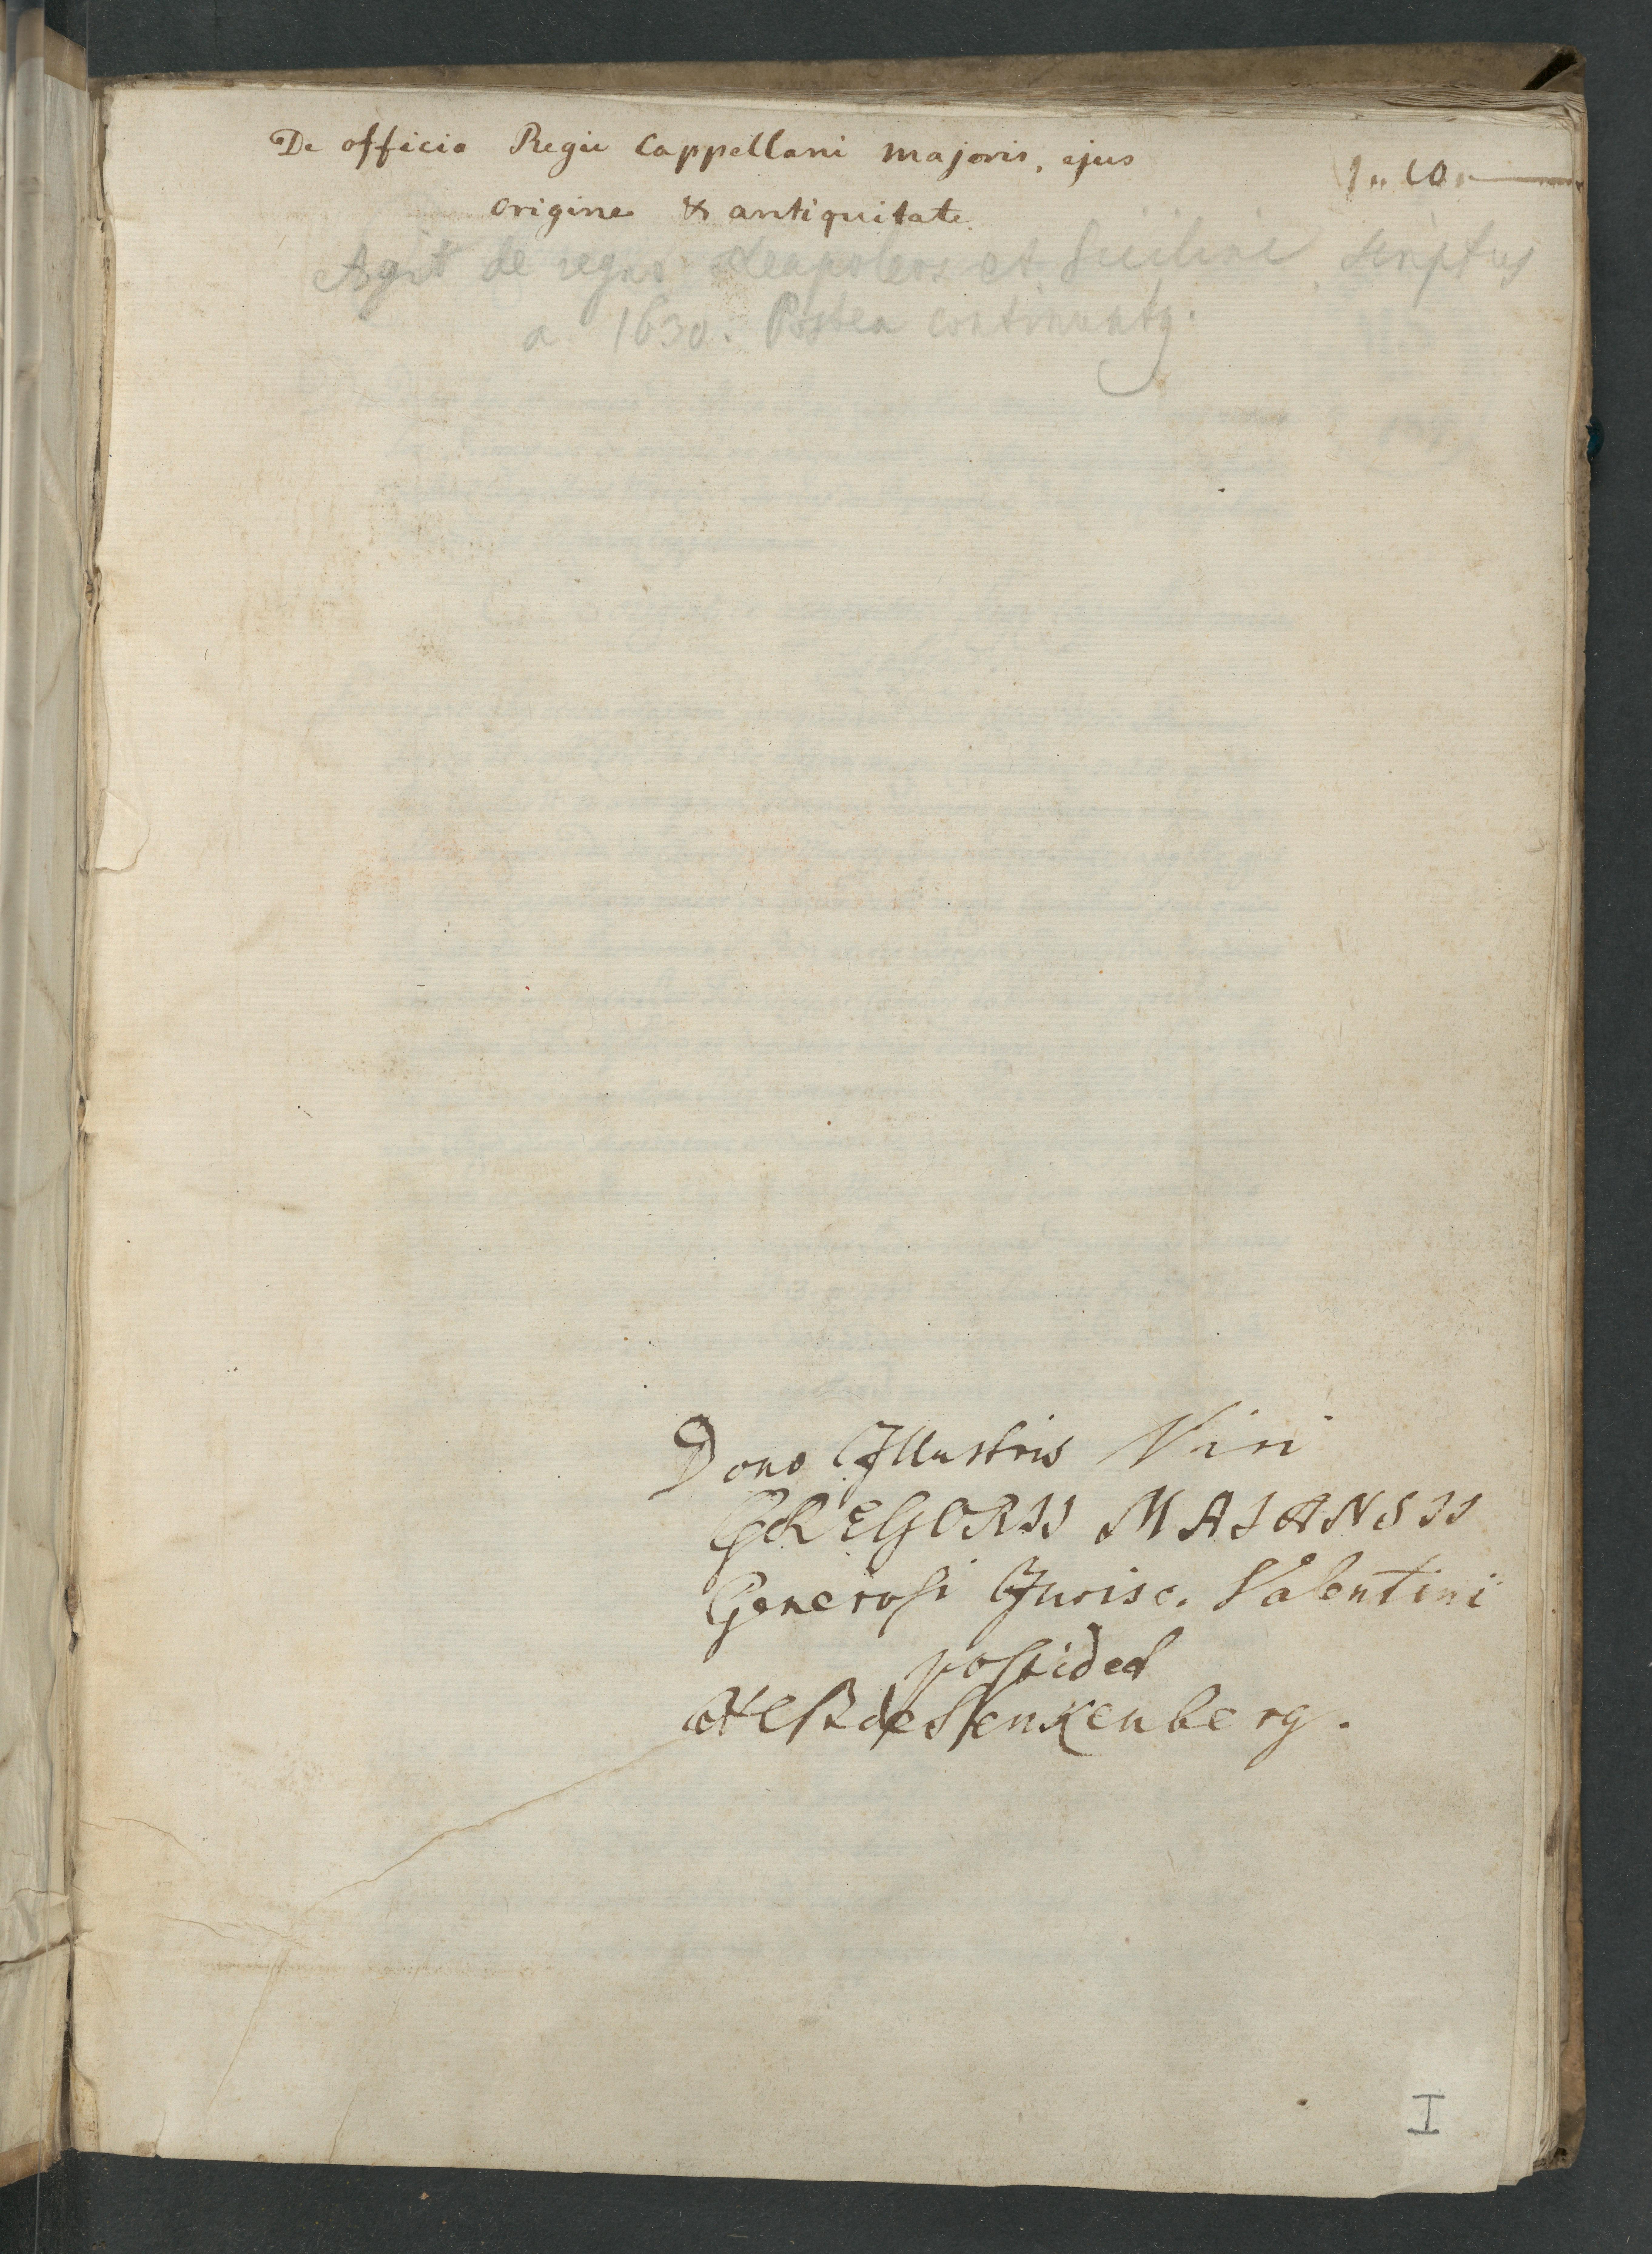 De officio Regii Cappellani majoris, ejus
origine & antiquitate.
1 " 10 "
Agit de regno Neapoleos et Siciliae scriptus
a 1630. Postea continuatq.
Dono Illustris Viri
GREGORII MAJANSII
Generosi Jurisc. Valentini
possidet
de Senkenberg.
I